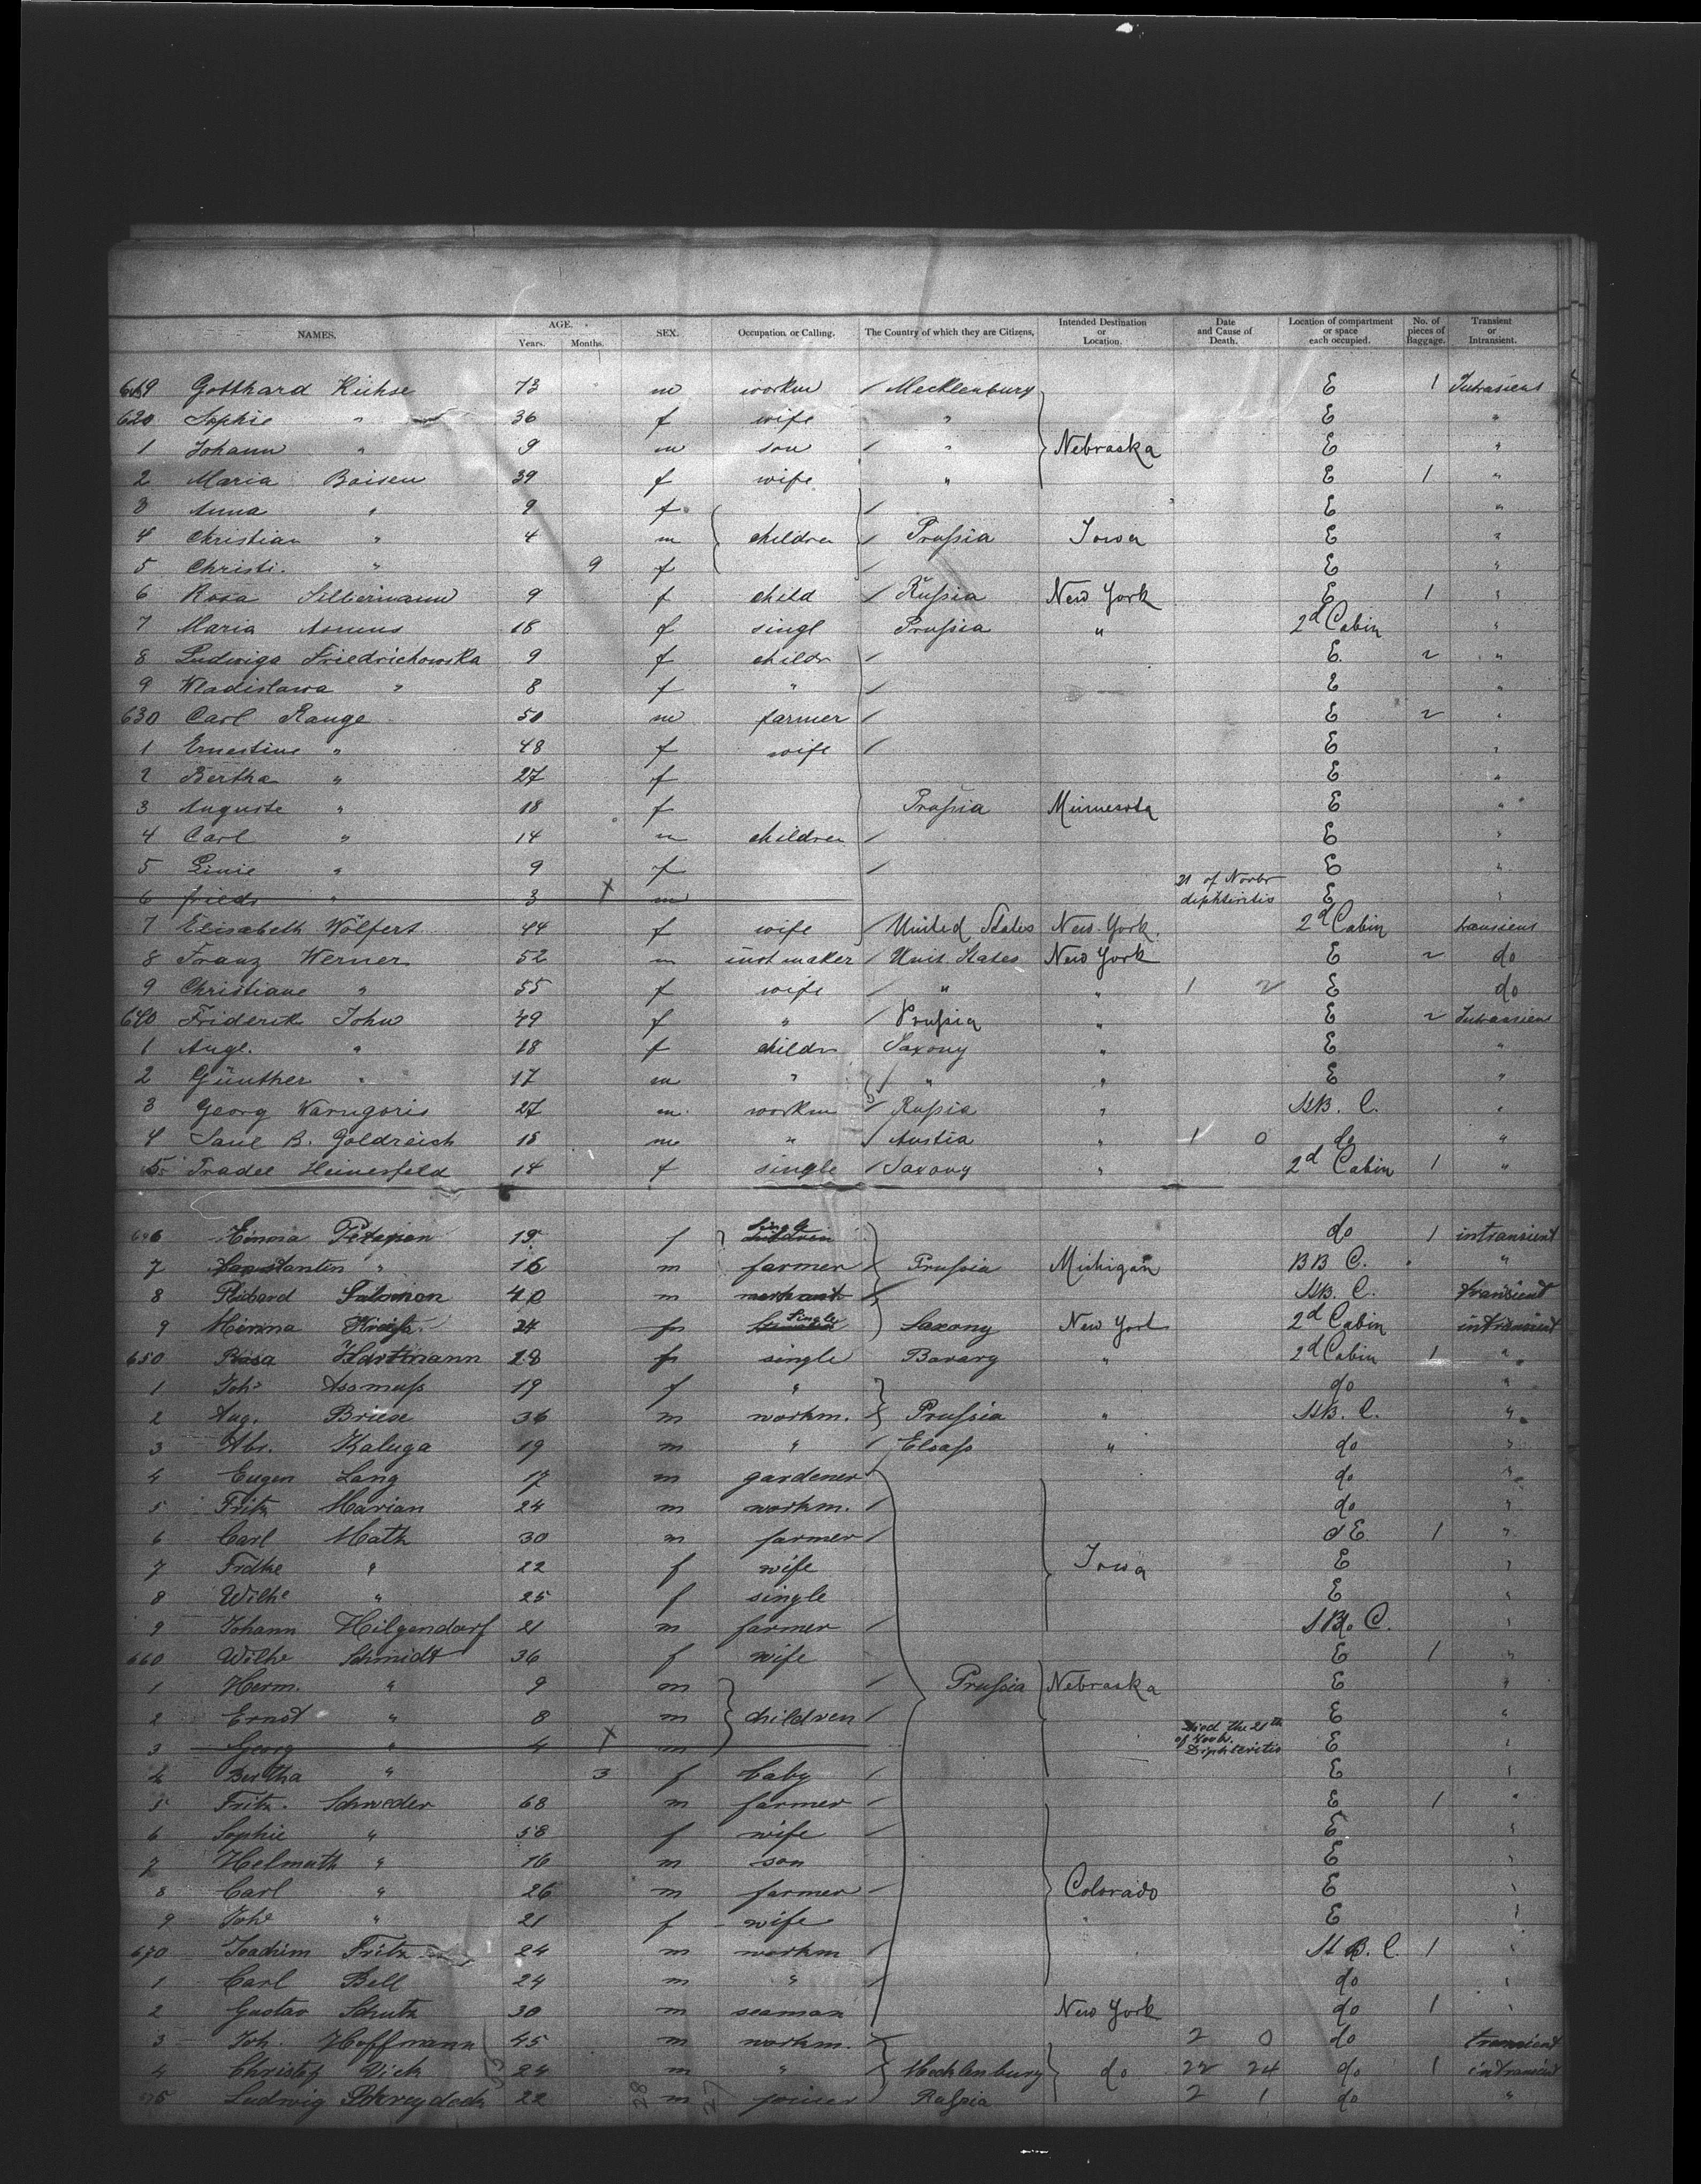 NAMES. AGE. Years. Months. SEX. Occupation or Calling. The Country of which they are Citizens, Intended Destination or Location. Date and Cause of Death. Location of compartment or space each occupied. No. of pieces of Baggage. Transient or Intransient.
619 Gotthard 73 m workm / Mecklenburg E 1 Intransient
620 Sophie " 36 f wife " E "
1 Johann " 9 m son / " Nebraska E "
2 Maria Boisen 39 f wife " E 1 "
3 Anna " 9 f / E "
4 Christian " 4 m children / Prußia Iowa E "
5 Christi. " 9 f / E "
6 Rosa Silbermann 9 f child / Rußia New York E 1 "
7 Maria Asmus 18 f singl Prußia " 2d Cabin "
8 Ludwiga Friedrichowska 9 f childr / E. 2 "
9 Wladislawa " 8 f " / E "
630 Carl Range 50 m farmer / E 2 "
1 Ernestine " 48 f wife / E "
2 Bertha " 27 f E "
3 Auguste " 18 f Prußia Minnesota E "
4 Carl " 14 m children / E "
5 Linie " 9 f / E "
6 friedr " 3 X m 21 of Novbr diphteritis E "
7 Elisabeth Wölfert 44 f wife / United States New York. 2d Cabin transient
8 Franz Werner 52 m inst maker / Unit States New York E 2 do
9 Christiane " 55 f wife / " " 1 2 E do
640 Friderik John 49 f " / Prußia " E 2 Intransient
1 Augl. " 18 f childr Saxony " E "
2 Günther " 17 m " / " " E "
3 Georg 27 m workm / Rußia " StB. C. "
4 Saul B. Goldreich 18 m " / Austia " 1 0 do "
5 Fradel Heinersfeld 14 f single / Saxony " 2d Cabin 1 "
646 Emma Petersen 19 f Single do 1 intransient
7 Constantin " 16 m farmer / Prußia Michigan BB C. "
8 Salomon 40 m merchant / StB. C. transient
9 Minna 24 f Single Saxony New York 2d Cabin intransient
650 Rosa Hartmann 28 f single Bavary " 2d Cabin 1 "
1 Joh. Assmuß 19 f " do "
2 Aug. Briese 36 m workm. Prußia " StB. C. "
3 Abr. Kaluga 19 m " / Elsaß " do "
4 Eugen Lang 17 m gardener / do "
5 Fritz Marian 24 m workm. / do "
6 Carl Math 30 m farmer / E 1 "
7 Fridke " 22 f wife Iowa E "
8 Wilhe " 25 f single E "
9 Johann Hilgendorf 21 m farmer / StB. C. "
660 Wilhe Schmidt 36 f wife E 1 "
1 Herm. " 9 m / Prußia Nebraska E "
2 Ernst " 8 m children / E "
3 Georg " 4 X m Died the 21th of Novb. Diphteritis E "
4 Bertha " 3 f baby / E "
5 Fritz. Schroeder 68 m farmer / E 1 "
6 Sophie " 58 f wife / E "
7 Helmuth " 16 m son E "
8 Carl " 26 m farmer / Colorado E "
9 Johe " 21 f wife E "
670 Joachim Fritz 24 m workm / St B. C. 1 "
1 Carl Bell 24 m " / do "
2 Gustav Schutz 30 m seaman New York do 1 "
3 Joh. Hoffmann 45 m workm. 2 0 do transient
4 Christof Dick 24 m " Mecklenburg do 22 24 do 1 intransient
5 Ludwig 22 m joiner Rußia 2 1 do "
28 27